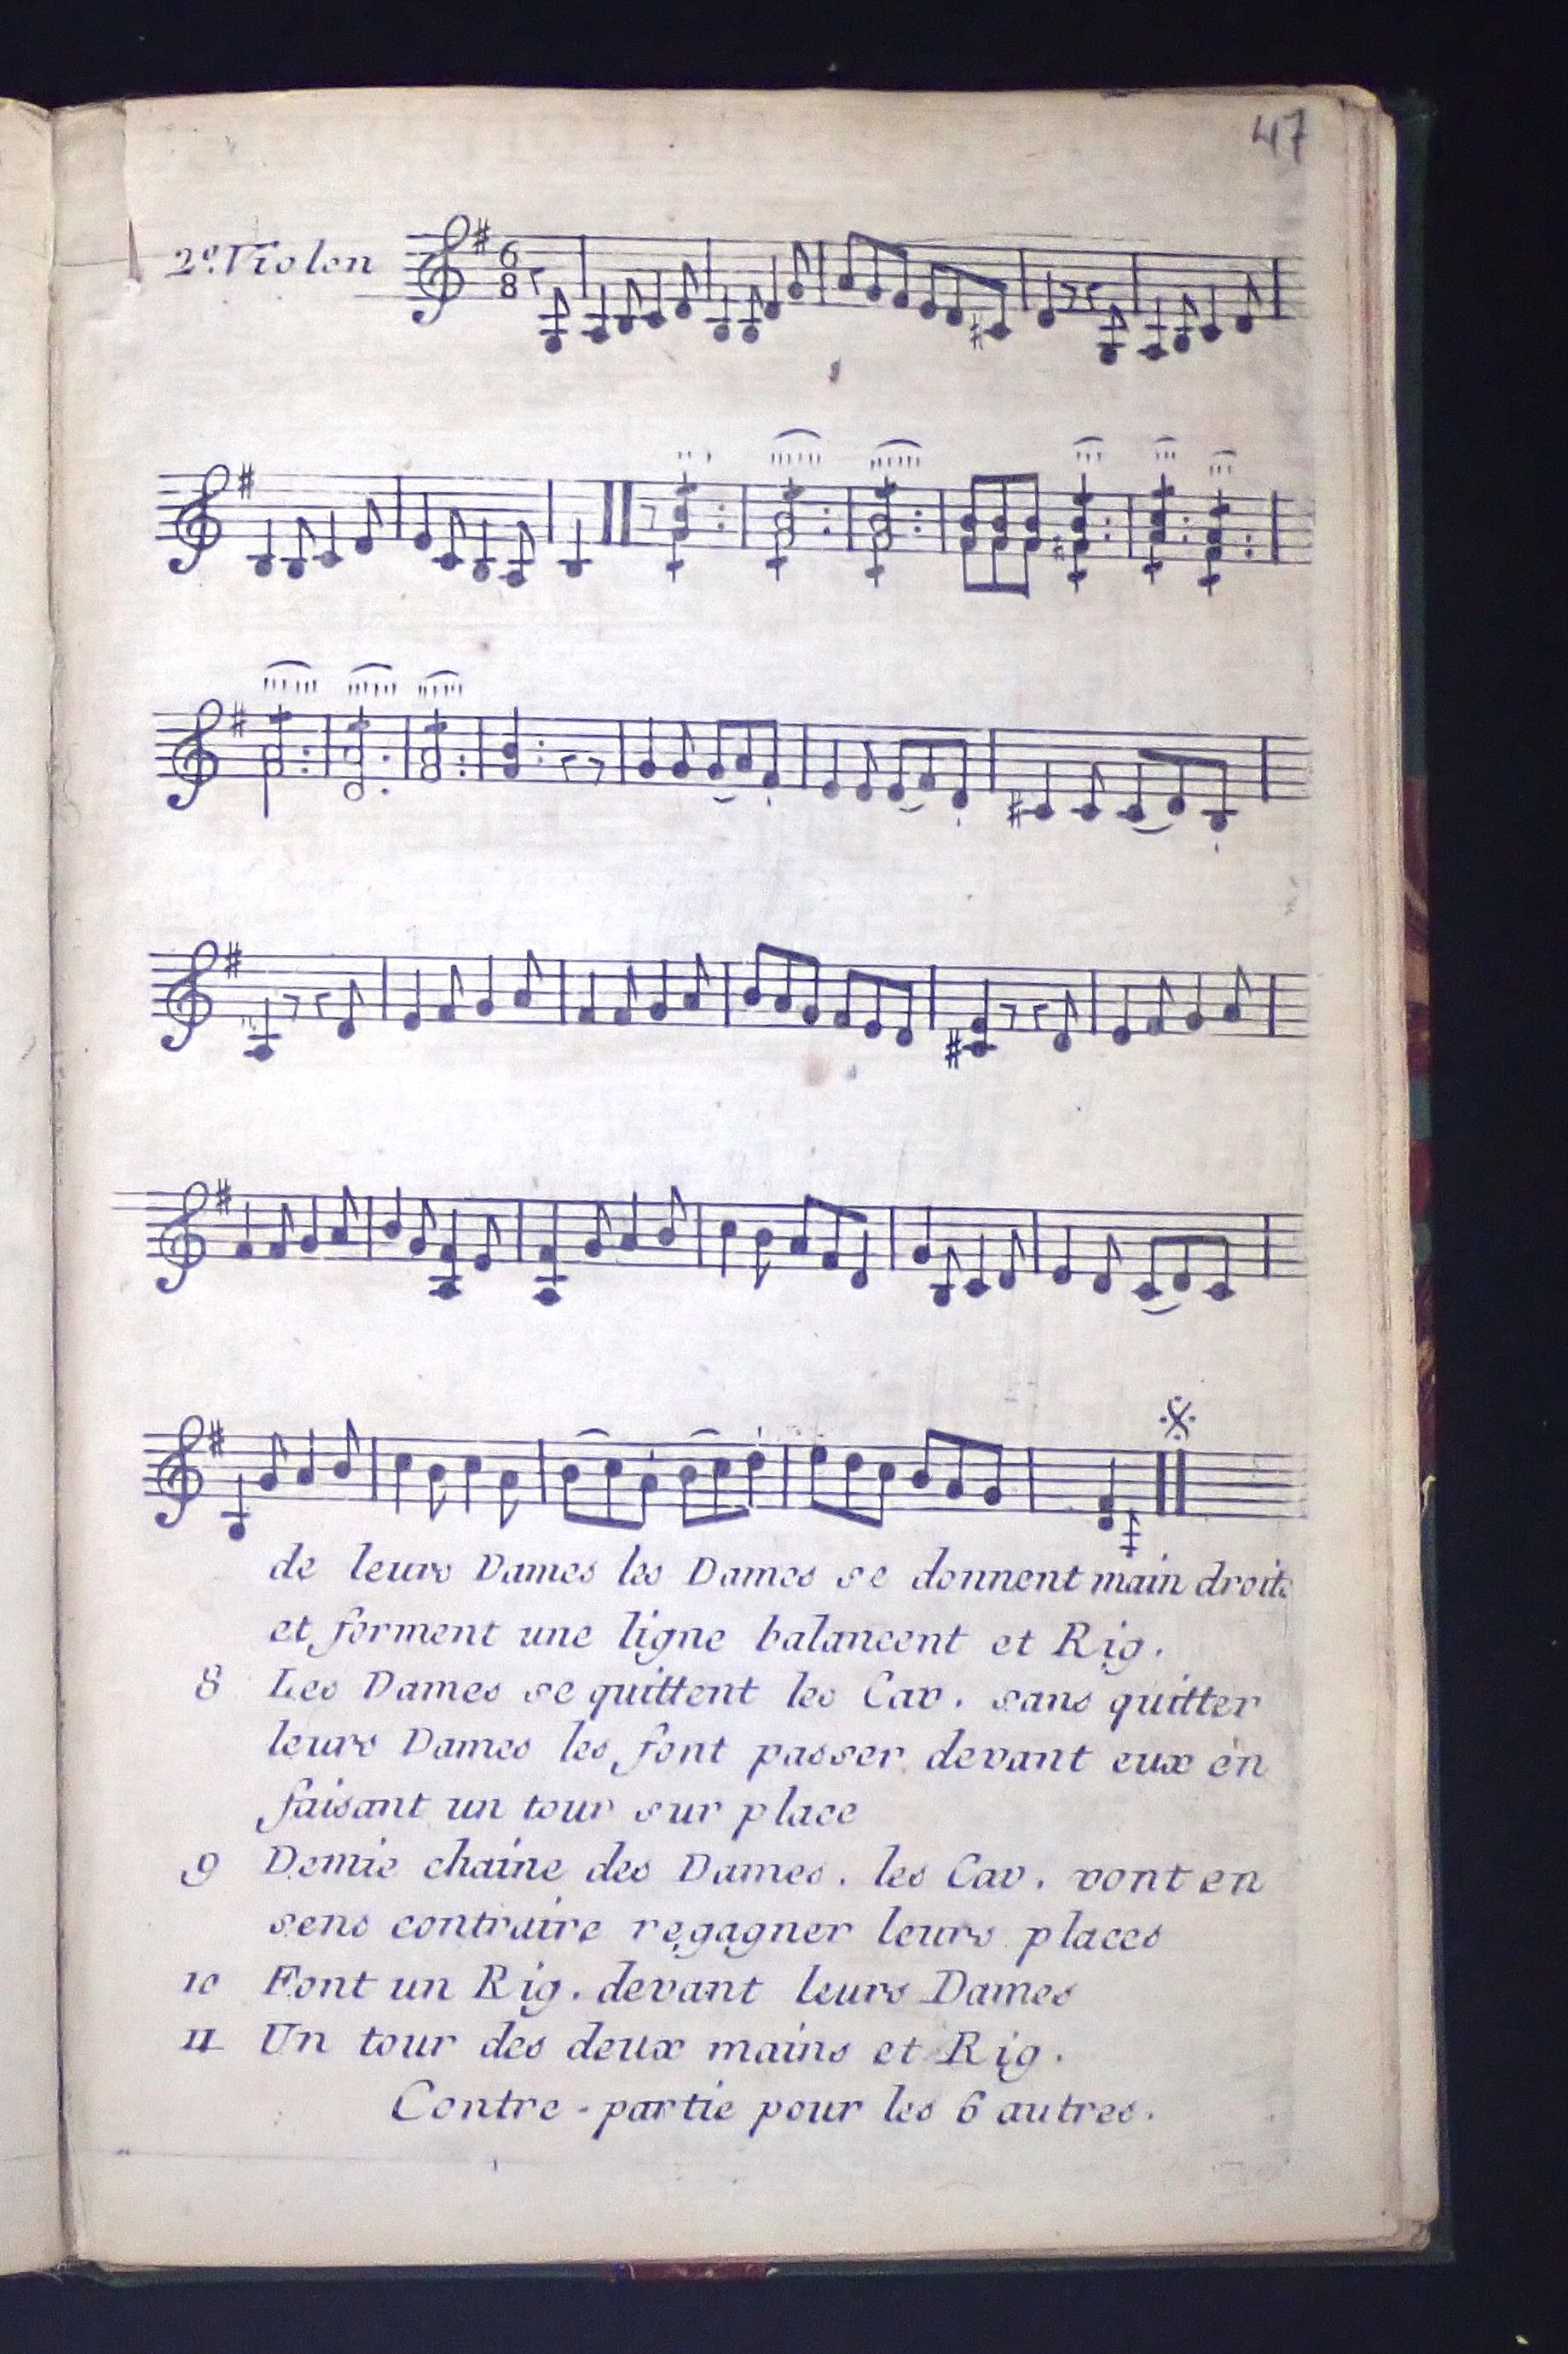 47
2e. Violon
6
8
de leurs Dames les Dames se donnent main droite
et forment une ligne balancent et Rig.
8 Les Dames se quittent les Cav. sans quitter
leurs Dames les font passer devant eux en
faisant un tour sur place
9 Demie chaine des Dames. les Cav. vont en
sens contraire regagner leurs places
10 Font un Rig. devant leurs Dames
11 Un tour des deux mains et Rig.
Contre-partie pour les 6 autres.